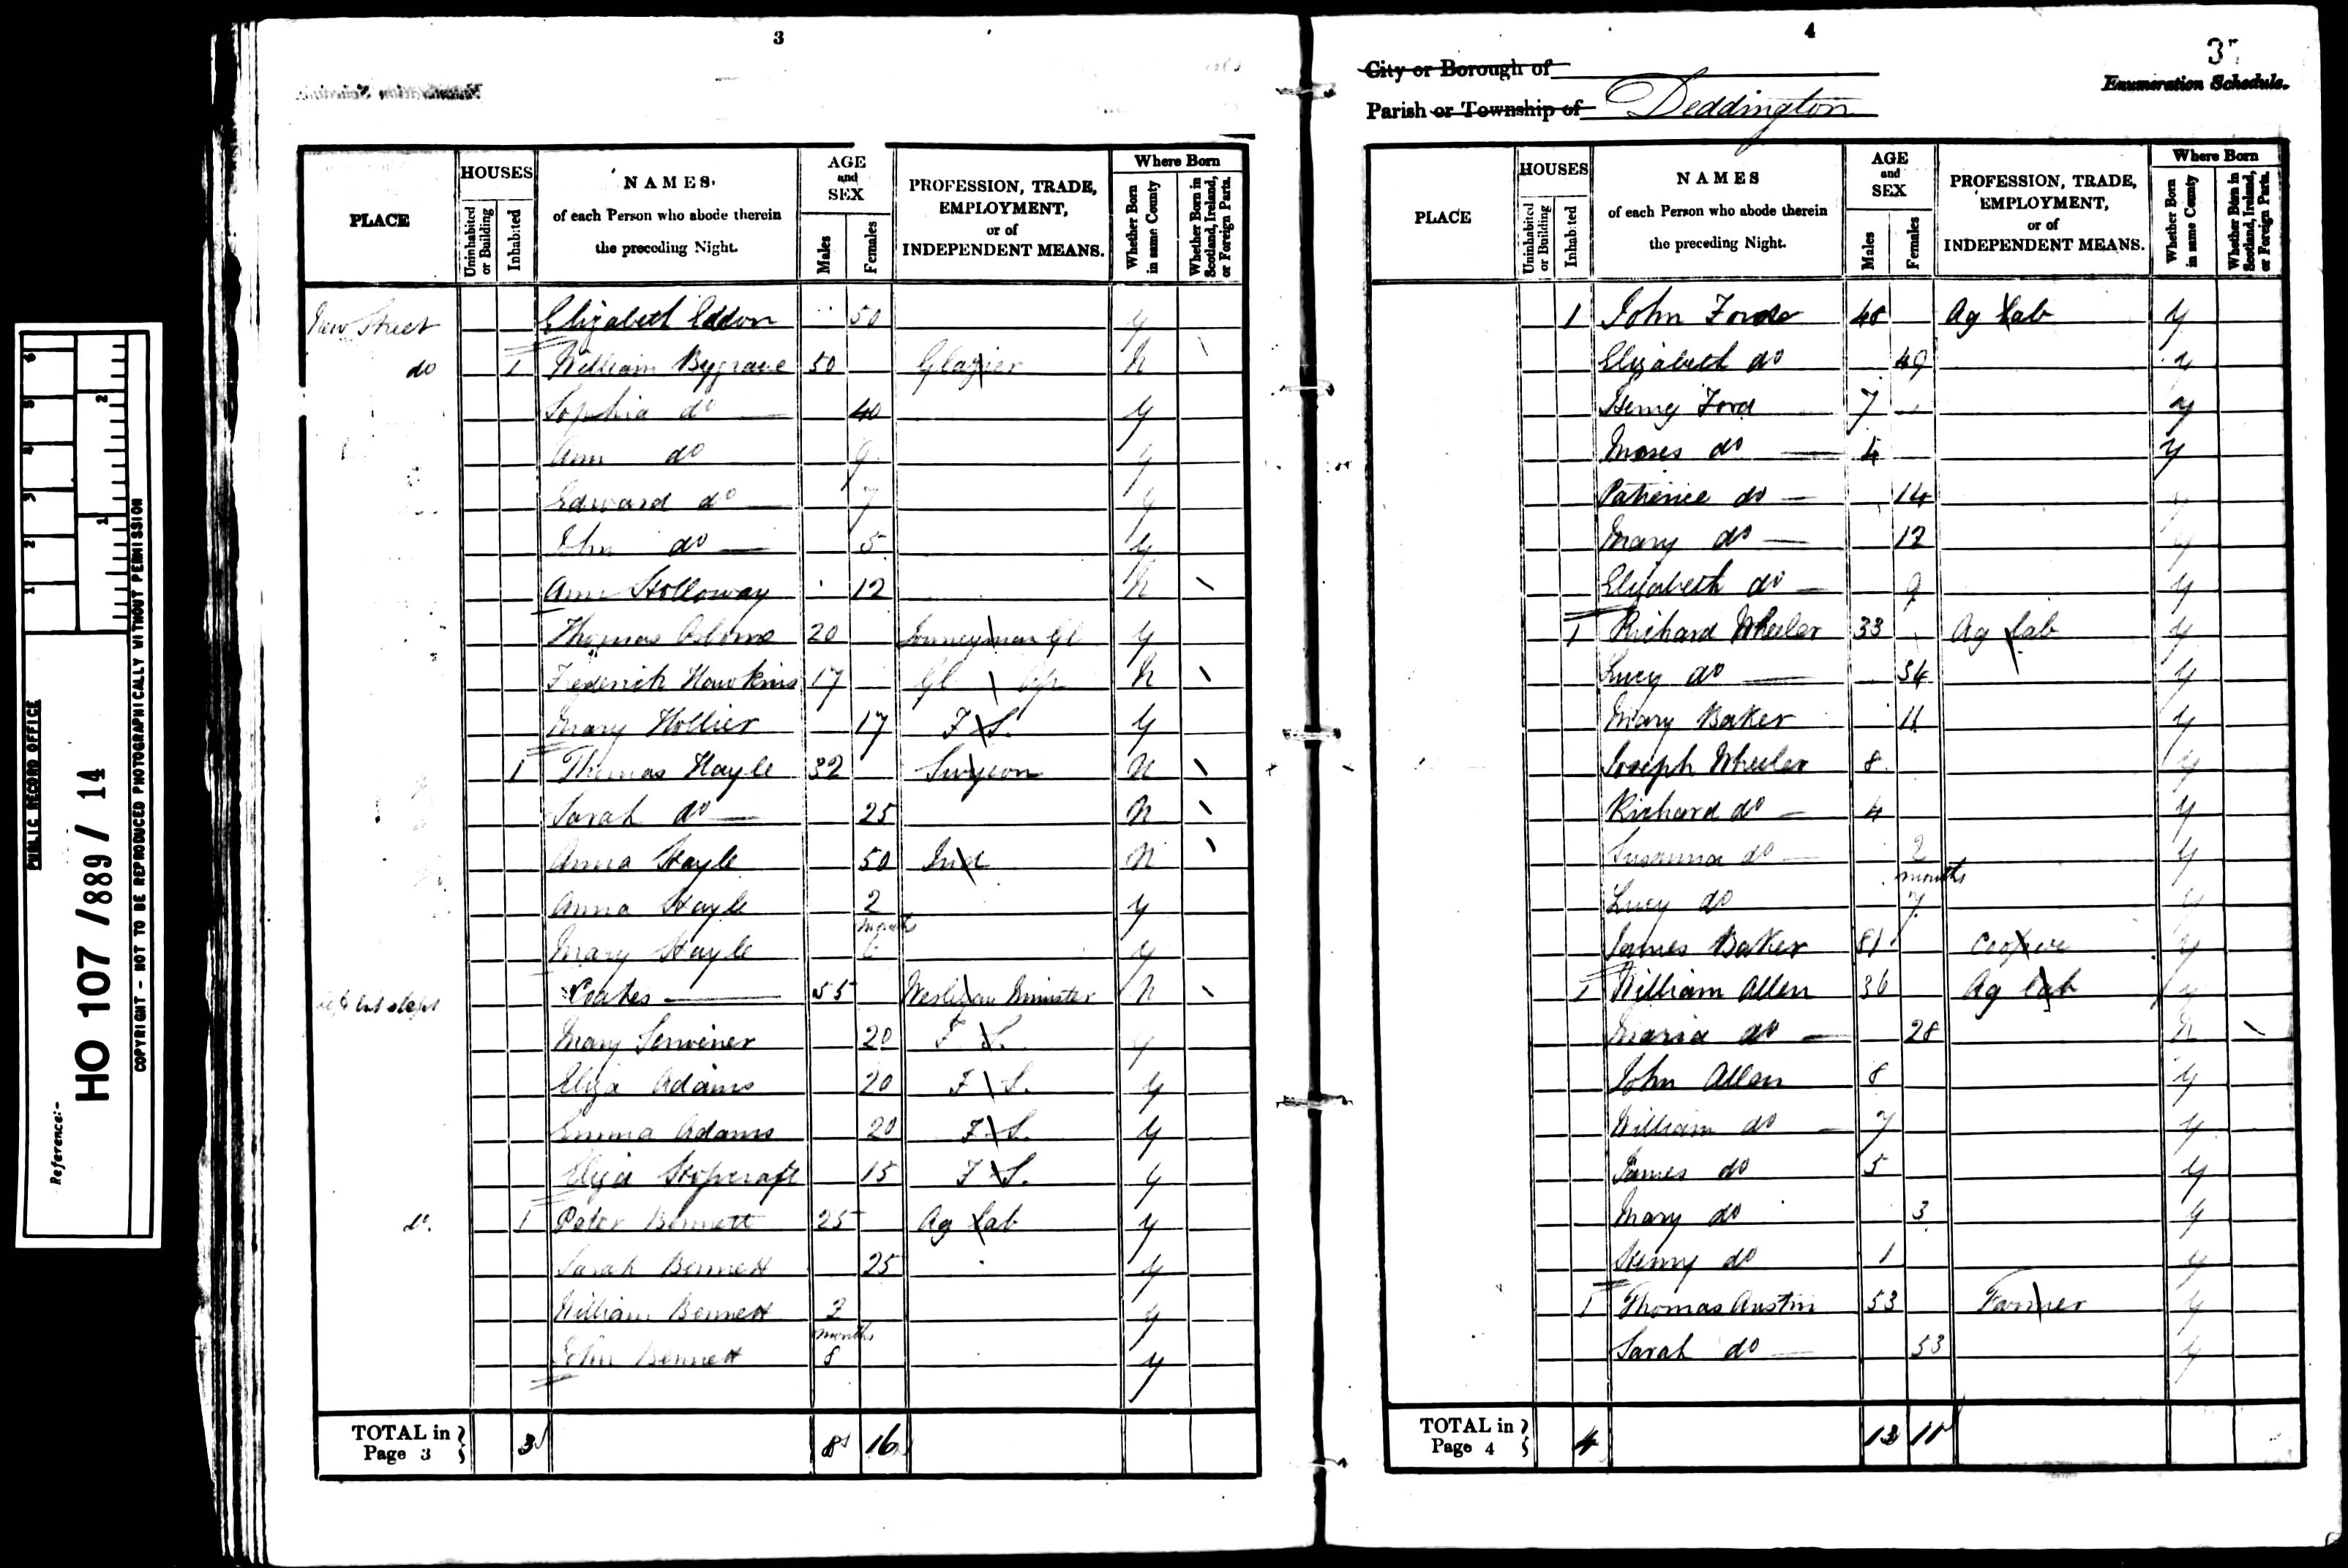 3
PLACE
HOUSES
Uninhabited or Building
Inhabited
NAMES
of each Person who abode therein
the preceding Night.
AGE
and
SEX
Males
Females
PROFESSION, TRADE,
EMPLOYMENT,
or of
INDEPENDENT MEANS.
Where Born
Whether Born in same County
Whether Born in Scotland, Ireland, or Foreign Parts.
New Street Elizabeth 50 y
do 1 William Bygrave 50 Glazier N
Sophia do 40 y
Ann do 9 y
Edward do 7 y
John do 5 y
Ann Holloway 12 N
Thomas Osborne 20 Journeyman Gl y
Frederick Hawkins 17 Gl Ap N
Mary Hollier 17 F S. y
1 Thomas Hayle 32 Surgeon N
Sarah do 25 N
Anna Hayle 50 Ind N
Anna Hayle 2 y
months
Mary Hayle y
Coates 55 Wesleyan Minister N
Mary Scrivener 20 F S. y
Eliza Adams 20 F S. y
Emma Adams 20 F S. y
Eliza Hopcraft 15 F S. y
do. 1 Peter Bennett 25 Ag Lab y
Sarah Bennett 25 y
William Bennett y
months
John Bennett 8 y
TOTAL in
Page 3 3 8 16
4
3
City or Borough of
Enumeration Schedule.
Parish or Township of Deddington
PLACE
HOUSES
Uninhabited or Building
Inhabited
NAMES
of each Person who abode therein
the preceding Night.
AGE
and
SEX
Males
Females
PROFESSION, TRADE,
EMPLOYMENT,
or of
INDEPENDENT MEANS.
Where Born
Whether Born in same County
Whether Born in Scotland, Ireland, or Foreign Parts.
1 John Ag Lab y
Elizabeth do 49 y
Henry Ford 7 y
Moses do 4 y
Patience do 14 y
Mary do 12 y
Elizabeth do 9 y
1 Richard Wheeler 33 Ag Lab y
Lucy do 34 y
Mary Baker 11 y
Joseph Wheeler 8 y
Richard do 4 y
Susanna do 2 y
months
Lucy do 7 y
James Baker 81 y
1 William Allen 36 Ag Lab y
Maria do 28 N
John Allen 8 y
William do 7 y
James do 5 y
Mary do 3 y
Henry do 1 y
1 Thomas Austin 53 Farmer y
Sarah do 53 y
TOTAL in
Page 4 4 13 11
PUBLIC RECORD OFFICE
Reference:-
HO 107 / 889 / 14
COPYRIGHT - NOT TO BE REPRODUCED PHOTOGRAPHICALLY WITHOUT PERMISSION
1 2 3 4 5 6
1 2